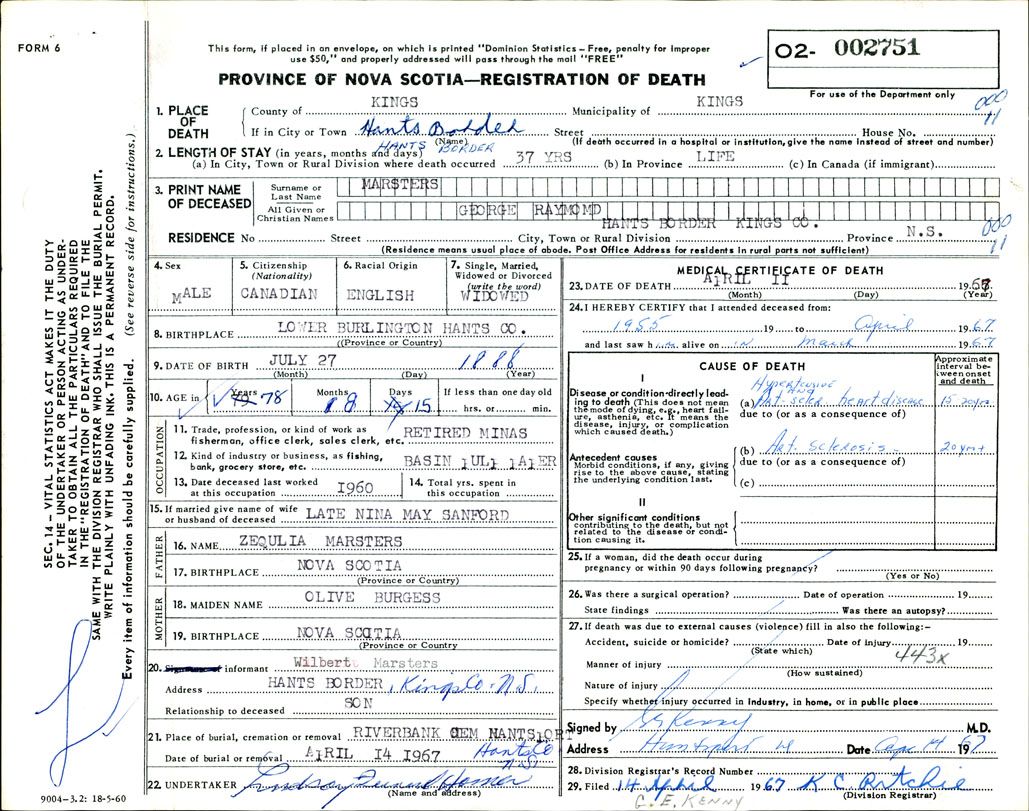 FORM 6
This form, if placed in an envelope, on which is printed "Dominion Statistics – Free, penalty for improper
use $50," and properly addressed will pass through the mail "FREE"
O2- 002751
PROVINCE OF NOVA SCOTIA—REGISTRATION OF DEATH
For use of the Department only
1. PLACE OF DEATH
County of KINGS Municipality of KINGS
000
11
If in City or Town Hants Border Street House No.
(Name) (If death occurred in a hospital or institution, give the name instead of street and number)
HANTS BORDER
2. LENGTH OF STAY (in years, months and days)
(a) In City, Town or Rural Division where death occurred 37 YRS (b) In Province LIFE (c) In Canada (if immigrant)
3. PRINT NAME OF DECEASED
Surname or Last Name MARSTERS
All Given or Christian Names GEORGE RAYMOMD
HANTS BORDER KINGS CO.
RESIDENCE No Street City, Town or Rural Division Province N.S.
000
11
(Residence means usual place of abode. Post Office Address for residents in rural parts not sufficient)
4. Sex
MALE
5. Citizenship
(Nationality)
CANADIAN
6. Racial Origin
ENGLISH
7. Single, Married,
Widowed or Divorced
(write the word)
WIDOWED
8. BIRTHPLACE LOWER BURLINGTON HANTS CO.
((Province or Country)
9. DATE OF BIRTH JULY 27 1888
(Month) (Day) (Year)
10. AGE in Years 78 Months 8 Days 15 If less than one day old
hrs. or min.
OCCUPATION
11. Trade, profession, or kind of work as
fisherman, office clerk, sales clerk, etc. RETIRED MINAS
12. Kind of industry or business, as fishing,
bank, grocery store, etc. BASIN
13. Date deceased last worked
at this occupation 1960
14. Total yrs. spent in
this occupation
15. If married give name of wife
or husband of deceased LATE NINA MAY SANFORD
FATHER
16. NAME ZEQULIA MARSTERS
17. BIRTHPLACE NOVA SCOTIA
(Province or Country)
MOTHER
18. MAIDEN NAME OLIVE BURGESS
19. BIRTHPLACE NOVA SCOTIA
(Province or Country
20. informant Wilbert Marsters
Address HANTS BORDER, Kings Co. N.S.
Relationship to deceased SON
21. Place of burial, cremation or removal RIVERBANK CEM HANTSPORT
Date of burial or removal APRIL 14 1967 Hants Co
N.S.
22. UNDERTAKER
(Name and address)
9004–3.2: 18-5-60
MEDICAL CERTIFICATE OF DEATH
23. DATE OF DEATH APRIL 11 1967
(Month) (Day) (Year)
24. I HEREBY CERTIFY that I attended deceased from:
1955 19 to April 1967
and last saw him alive on in March 1967
CAUSE OF DEATH
Approximate
interval be-
tween onset
and death
I
Disease or condition directly lead-
ing to death (This does not mean
the mode of dying, e.g., heart fail-
ure, asthenia, etc. It means the
disease, injury, or complication
which caused death.)
Hypertensive
AND
(a) Art. scler. heart disease 15 years
due to (or as a consequence of)
(b) Art. sclerosis 20 yrs+
Antecedent causes
Morbid conditions, if any, giving
rise to the above cause, stating
the underlying condition last.
due to (or as a consequence of)
(c)
II
Other significant conditions
contributing to the death, but not
related to the disease or condi-
tion causing it.
25. If a woman, did the death occur during
pregnancy or within 90 days following pregnancy?
(Yes or No)
26. Was there a surgical operation? Date of operation 19
State findings Was there an autopsy?
27. If death was due to external causes (violence) fill in also the following:–
Accident, suicide or homicide? Date of injury 19
(State which)
443x
Manner of injury
(How sustained)
Nature of injury
Specify whether injury occurred in Industry, in home, or in public place
Signed by Kenny M.D.
Address Hantsport Date Apr 14 1967
28. Division Registrar's Record Number
29. Filed 14 April 1967 K C Ritchie
(Division Registrar)
G. E. KENNY
SEC. 14 – VITAL STATISTICS ACT MAKES IT THE DUTY
OF THE UNDERTAKER OR PERSON ACTING AS UNDER-
TAKER TO OBTAIN ALL THE PARTICULARS REQUIRED
IN THE "REGISTRATION OF DEATH" AND TO FILE THE
SAME WITH THE DIVISION REGISTRAR WHO SHALL ISSUE THE BURIAL PERMIT.
WRITE PLAINLY WITH UNFADING INK. THIS IS A PERMANENT RECORD.
Every item of information should be carefully supplied. (See reverse side for instructions.)